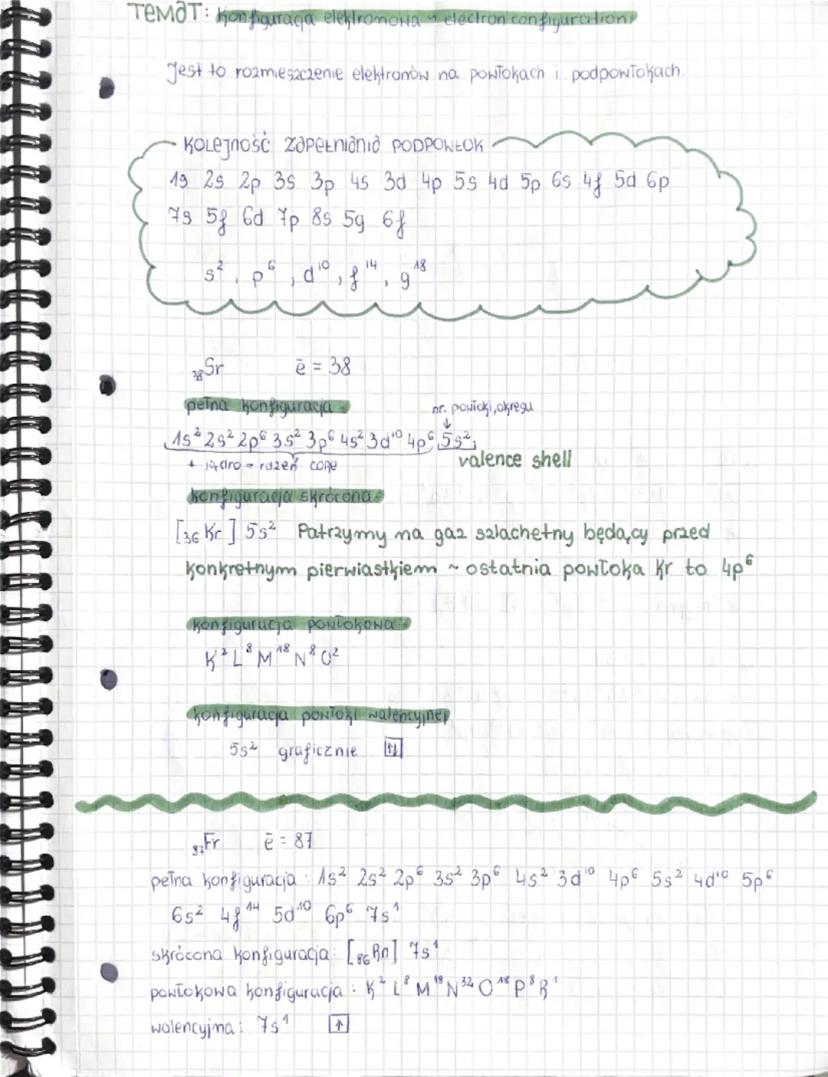 TEMAT: Konfiguracja elektronowa ~ electron configuration
Jest to rozmieszczenie elektronów na powłokach i podpowłokach
KOLEJNOŚĆ ZAPEŁNIANIA PODPOWŁOK
1s 2s 2p 3s 3p 4s 3d 4p 5s 4d 5p 6s 4f 5d 6p
7s 5f 6d 7p 8s 5g 6f
s², p⁶, d¹⁰, f¹⁴, g¹⁸
₃₈Sr ē = 38
pełna konfiguracja
nr. powłoki, okresu
↓
1s² 2s² 2p⁶ 3s² 3p⁶ 4s² 3d¹⁰ 4p⁶ 5s²
+ jądro = rdzeń core
valence shell
konfiguracja skrócona
[₃₆Kr] 5s² Patrzymy na gaz szlachetny będący przed
konkretnym pierwiastkiem ~ ostatnia powłoka Kr to 4p⁶
konfiguracja powłokowa
K² L⁸ M¹⁸ N⁸ O²
konfiguracja powłoki walencyjnej
5s² graficznie ↑↓
₈₇Fr ē = 87
pełna konfiguracja: 1s² 2s² 2p⁶ 3s² 3p⁶ 4s² 3d¹⁰ 4p⁶ 5s² 4d¹⁰ 5p⁶
6s² 4f¹⁴ 5d¹⁰ 6p⁶ 7s¹
skrócona konfiguracja: [₈₆Rn] 7s¹
powłokowa konfiguracja: K² L⁸ M¹⁸ N³² O¹⁸ P⁸ R¹
walencyjna: 7s¹ ↑